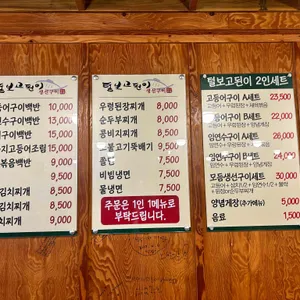 털보고된이
생선구이
등어구이백반 10,000
면수구이백반 13,000
구이백반 15,000
치고등어조림 15,000
볶음백반 9,500
9,000
김치찌개 8,500
김치찌개 8,500
치찌개 9,000
털보고된이
생선구이
우렁된장찌개 8,000
순두부찌개 8,000
콩비지찌개 8,500
불고기뚝배기 9,500
쫄면 7,500
비빔냉면 7,500
물냉면 7,500
주문은 1인 1메뉴로
부탁드립니다.
털보고된이 2인세트
고등어구이 A세트 23,500
고등어구이 B세트 22,000
임연수구이 A세트 26,000
임연수구이 B세트 24,000
모듬생선구이세트 30,000
양념게장(추가메뉴) 5,000
음료 1,500